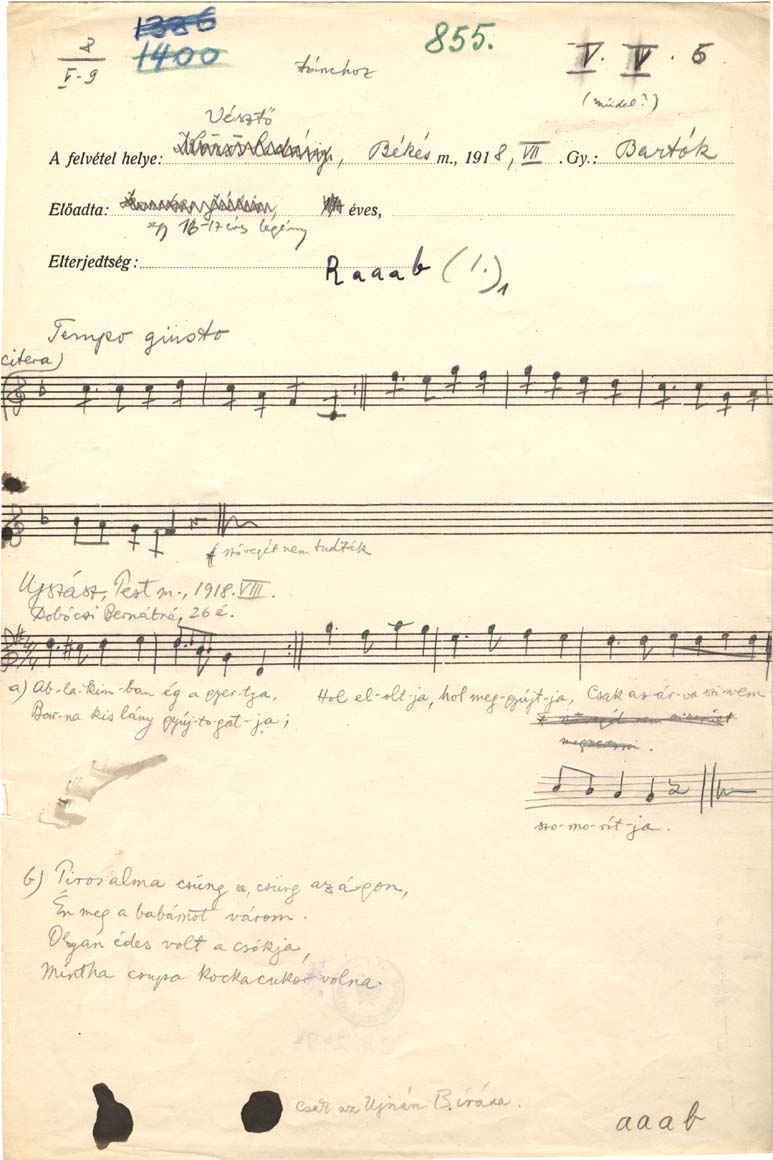 8
V-9
1386
1400
855.
tánchoz
V. V. 6
(mind?)
Vésztő
A felvétel helye: Békés m., 1918, VII. Gy.: Bartók
Előadta: éves,
egy 16-17 éves legény
Elterjedtség: Raaab (1.)1
Tempo giusto
citera)
szövegét nem tudták
Ujszász, Pest m., 1918. VIII.
Dobócsi Bernátné, 26 é.
a) Ab-la-kim-ban ég a gyer-tja, Hol el-olt-ja, hol meg-gyújt-ja, Csak az ár-va szi-vem
Bar-na kis lány gyúj-to-gat-ja;
szo-mo-rít-ja.
b) Piros alma csüng a, csüng az ágon,
Én meg a babámot várom.
Olyan édes volt a csókja,
Mintha csupa kockacukor volna.
aaab